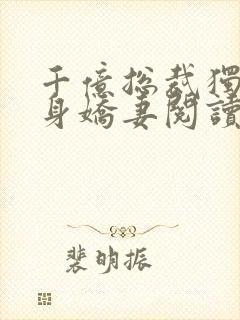 千億总裁獨
身嬌妻閱讀
裴明振